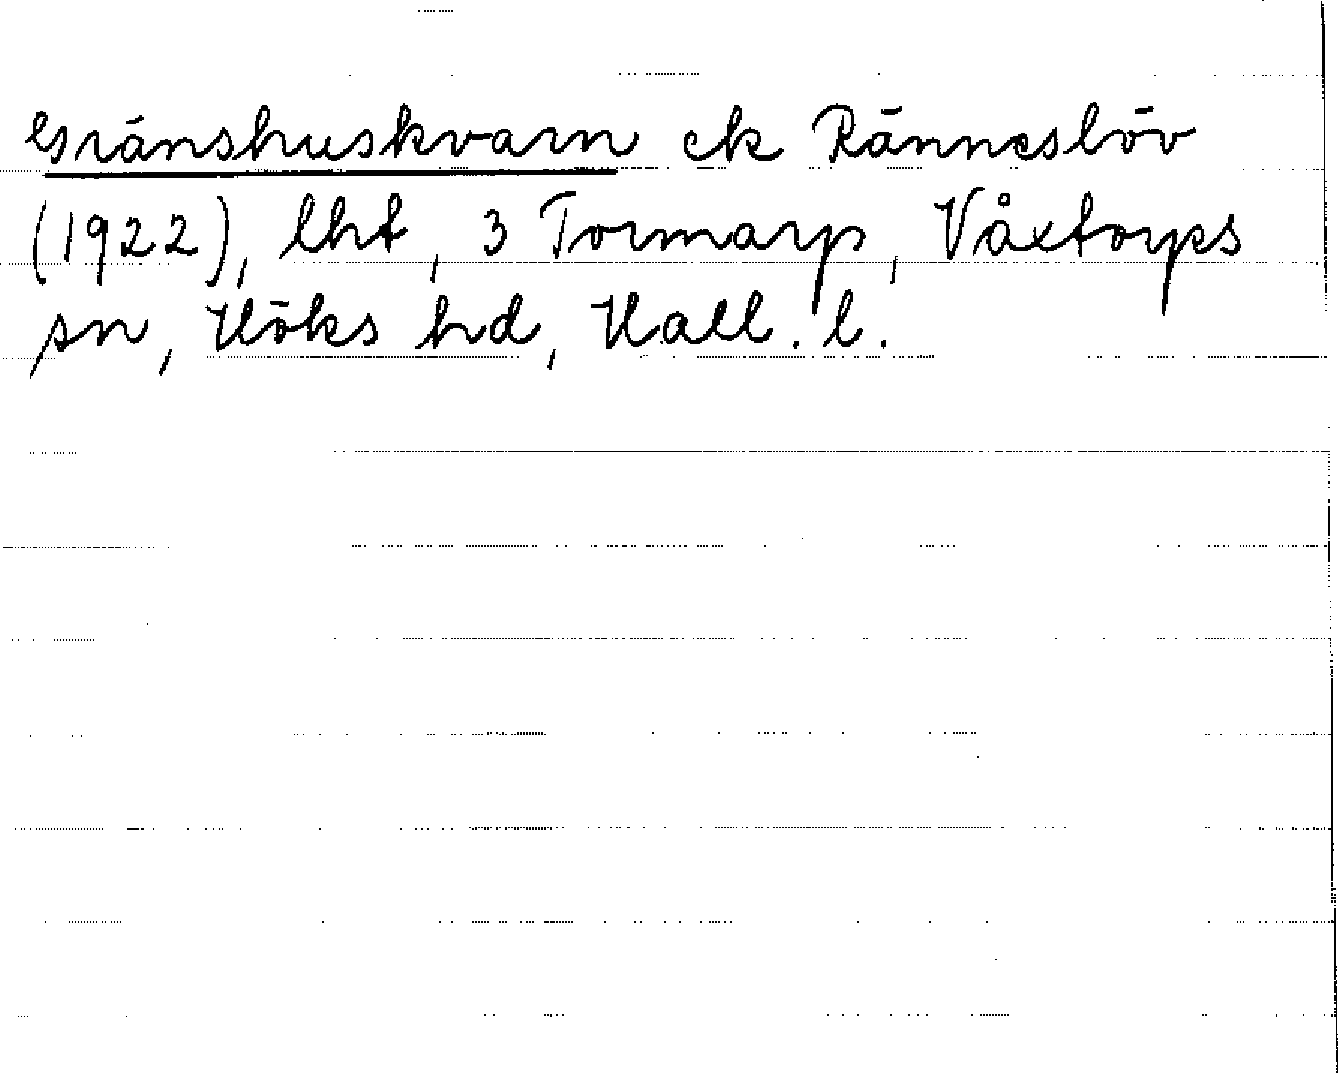 Gränshuskvarn ek Ränneslöv
(1922), lht, 3 Tormarp, Våxtorps
sn, Höks hd, Hall. l.